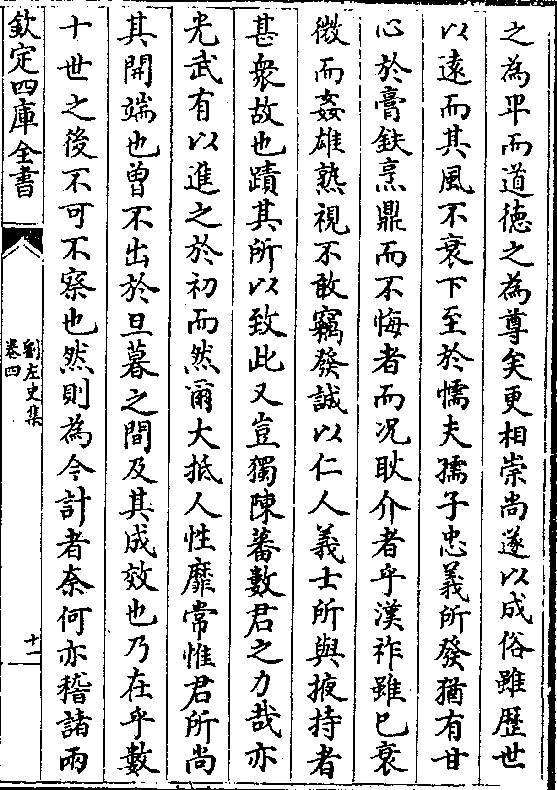 之為平而道徳之為尊矣更相崇尚遂以成俗雖歴世
以逺而其風不衰下至於懦夫孺子忠義所發猶有甘
心於膏鈇烹鼎而不悔者而况耿介者乎漢祚雖已衰
微而姦雄熟視不敢竊發誠以仁人義士所與掖持者
甚衆故也蹟其所以致此又豈獨陳蕃數君之力哉亦
光武有以進之於初而然爾大抵人性靡常惟君所尚
其開端也曽不出於旦暮之間及其成效也乃在乎數
十世之後不可不察也然則為今計者奈何亦稽諸兩
欽定四庫全書
劉左史集
卷四
十一